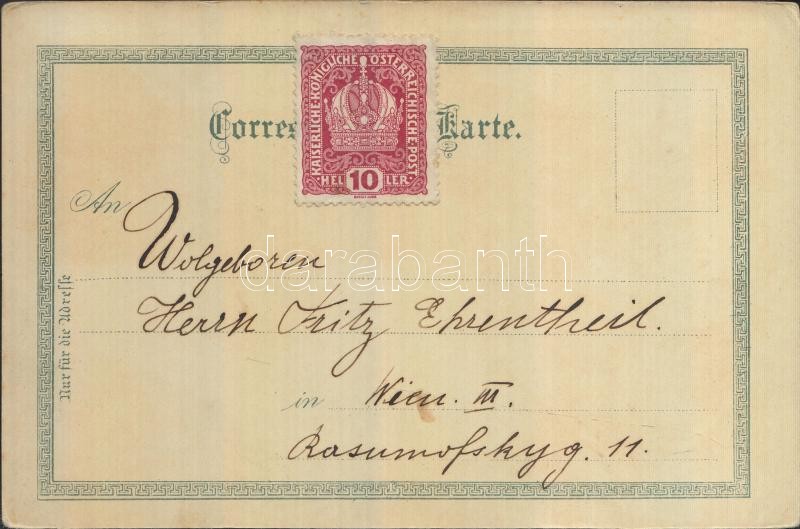 KAISERLICHE·KÖNIGLICHE ÖSTERREICHISCHE·POST
HEL 10 LER
Corres Karte.
An
Wolgeboren
darabanth
Herrn Fritz Ehrentheil.
in Wien. III.
Rasumofskyg. 11.
Nur für die Adresse